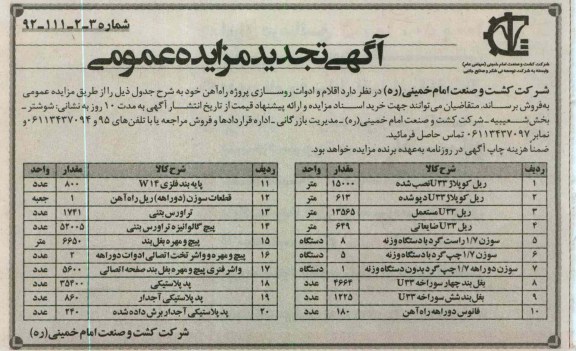 شماره ۳-۲-۱۱۱-۹۲
آگهی تجدید مزایده عمومی
شرکت کشت و صنعت امام خمینی (سهامی عام)
وابسته به شرکت توسعه نی شکر و صنایع جانبی
شرکت کشت و صنعت امام خمینی (ره) در نظر دارد اقلام و ادوات روسازی پروژه راه آهن خود به شرح جدول ذیل را از طریق مزایده عمومی
به فروش برساند. متقاضیان می توانند جهت خرید اسناد مزایده و ارائه پیشنهاد قیمت از تاریخ انتشار آگهی به مدت ۱۰ روز به نشانی: شوشتر -
بخش شعیبیه - شرکت کشت و صنعت امام خمینی (ره) - مدیریت بازرگانی - اداره قراردادها و فروش مراجعه یا با تلفن های ۹۵ و ۰۶۱۱۳۴۳۷۰۹۴ و
نمابر ۰۶۱۱۳۴۳۷۰۹۷ تماس حاصل فرمائید.
ضمناً هزینه چاپ آگهی در روزنامه به عهده برنده مزایده خواهد بود.
ردیف شرح کالا مقدار واحد
۱ ریل کوپلاژ U33 نصب شده ۱۵۰۰۰ متر
۲ ریل کوپلاژ U33 دپو شده ۶۱۳ متر
۳ ریل U33 مستعمل ۱۳۵۶۵ متر
۴ ریل U33 ضایعاتی ۶۴۹ متر
۵ سوزن ۱/۷ راست گرد با دستگاه وزنه ۸ دستگاه
۶ سوزن ۱/۷ چپ گرد با دستگاه وزنه ۵ دستگاه
۷ سوزن دوراهه ۱/۷ چپ گرد بدون دستگاه وزنه ۱ دستگاه
۸ بغل بند چهار سوراخه U33 ۴۶۶۴ عدد
۹ بغل بند شش سوراخه U33 ۱۲۲۵ عدد
۱۰ فانوس دوراهه راه آهن ۱۸۰ عدد
ردیف شرح کالا مقدار واحد
۱۱ پایه بند فلزی W14 ۸۰۰ عدد
۱۲ قطعات سوزن (دوراهه) ریل راه آهن ۱ جعبه
۱۳ تراورس بتنی ۱۷۲۱ عدد
۱۴ پیچ گالوانیزه تراورس بتنی ۵۲۰۰۵ عدد
۱۵ پیچ و مهره بغل بند ۶۶۵۰ متر
۱۶ پیچ و مهره و واشر تخت اتصالی ادوات دوراهه ۲ عدد
۱۷ واشر فنری پیچ و مهره بغل بند صفحه اتصالی ۵۶۰۰ عدد
۱۸ پد پلاستیکی ۳۵۴۰۰ عدد
۱۹ پد پلاستیکی آجدار ۸۶۰ عدد
۲۰ پد پلاستیکی آجدار برش داده شده ۲۴۰ عدد
شرکت کشت و صنعت امام خمینی (ره)